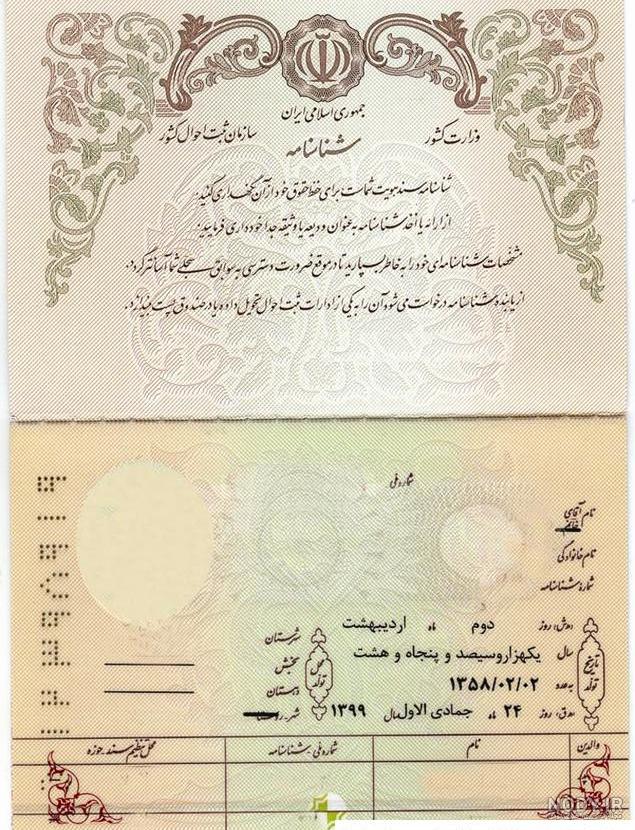 جمهوری اسلامی ایران
وزارت کشور
سازمان ثبت احوال کشور
شناسنامه
شناسنامه سند هویت شماست برای حفظ حقوق خود از آن نگهداری کنید.
از ارائه یا اخذ شناسنامه به عنوان ودیعه یا وثیقه جداً خودداری فرمایید.
مشخصات شناسنامه‌ای خود را به خاطر بسپارید تا در موقع ضرورت دسترسی به سوابق سجلی شما آسانتر گردد.
از یابنده شناسنامه درخواست می‌شود آن را به یکی از ادارات ثبت احوال تحویل داده یا در صندوق پست بیندازد.
شماره ملی
نام آقای
خانم
نام خانوادگی
شماره شناسنامه
تاریخ تولد
(ه‍.ش) روز دوم ماه اردیبهشت
سال یکهزاروسیصد و پنجاه و هشت
به عدد ۱۳۵۸/۰۲/۰۲
(ه‍.ق) روز ۲۴ ماه جمادی الاول سال ۱۳۹۹
محل تولد
شهرستان
بخش
دهستان
شهر
والدین
نام
شماره ملی - شناسنامه
محل تنظیم سند - حوزه